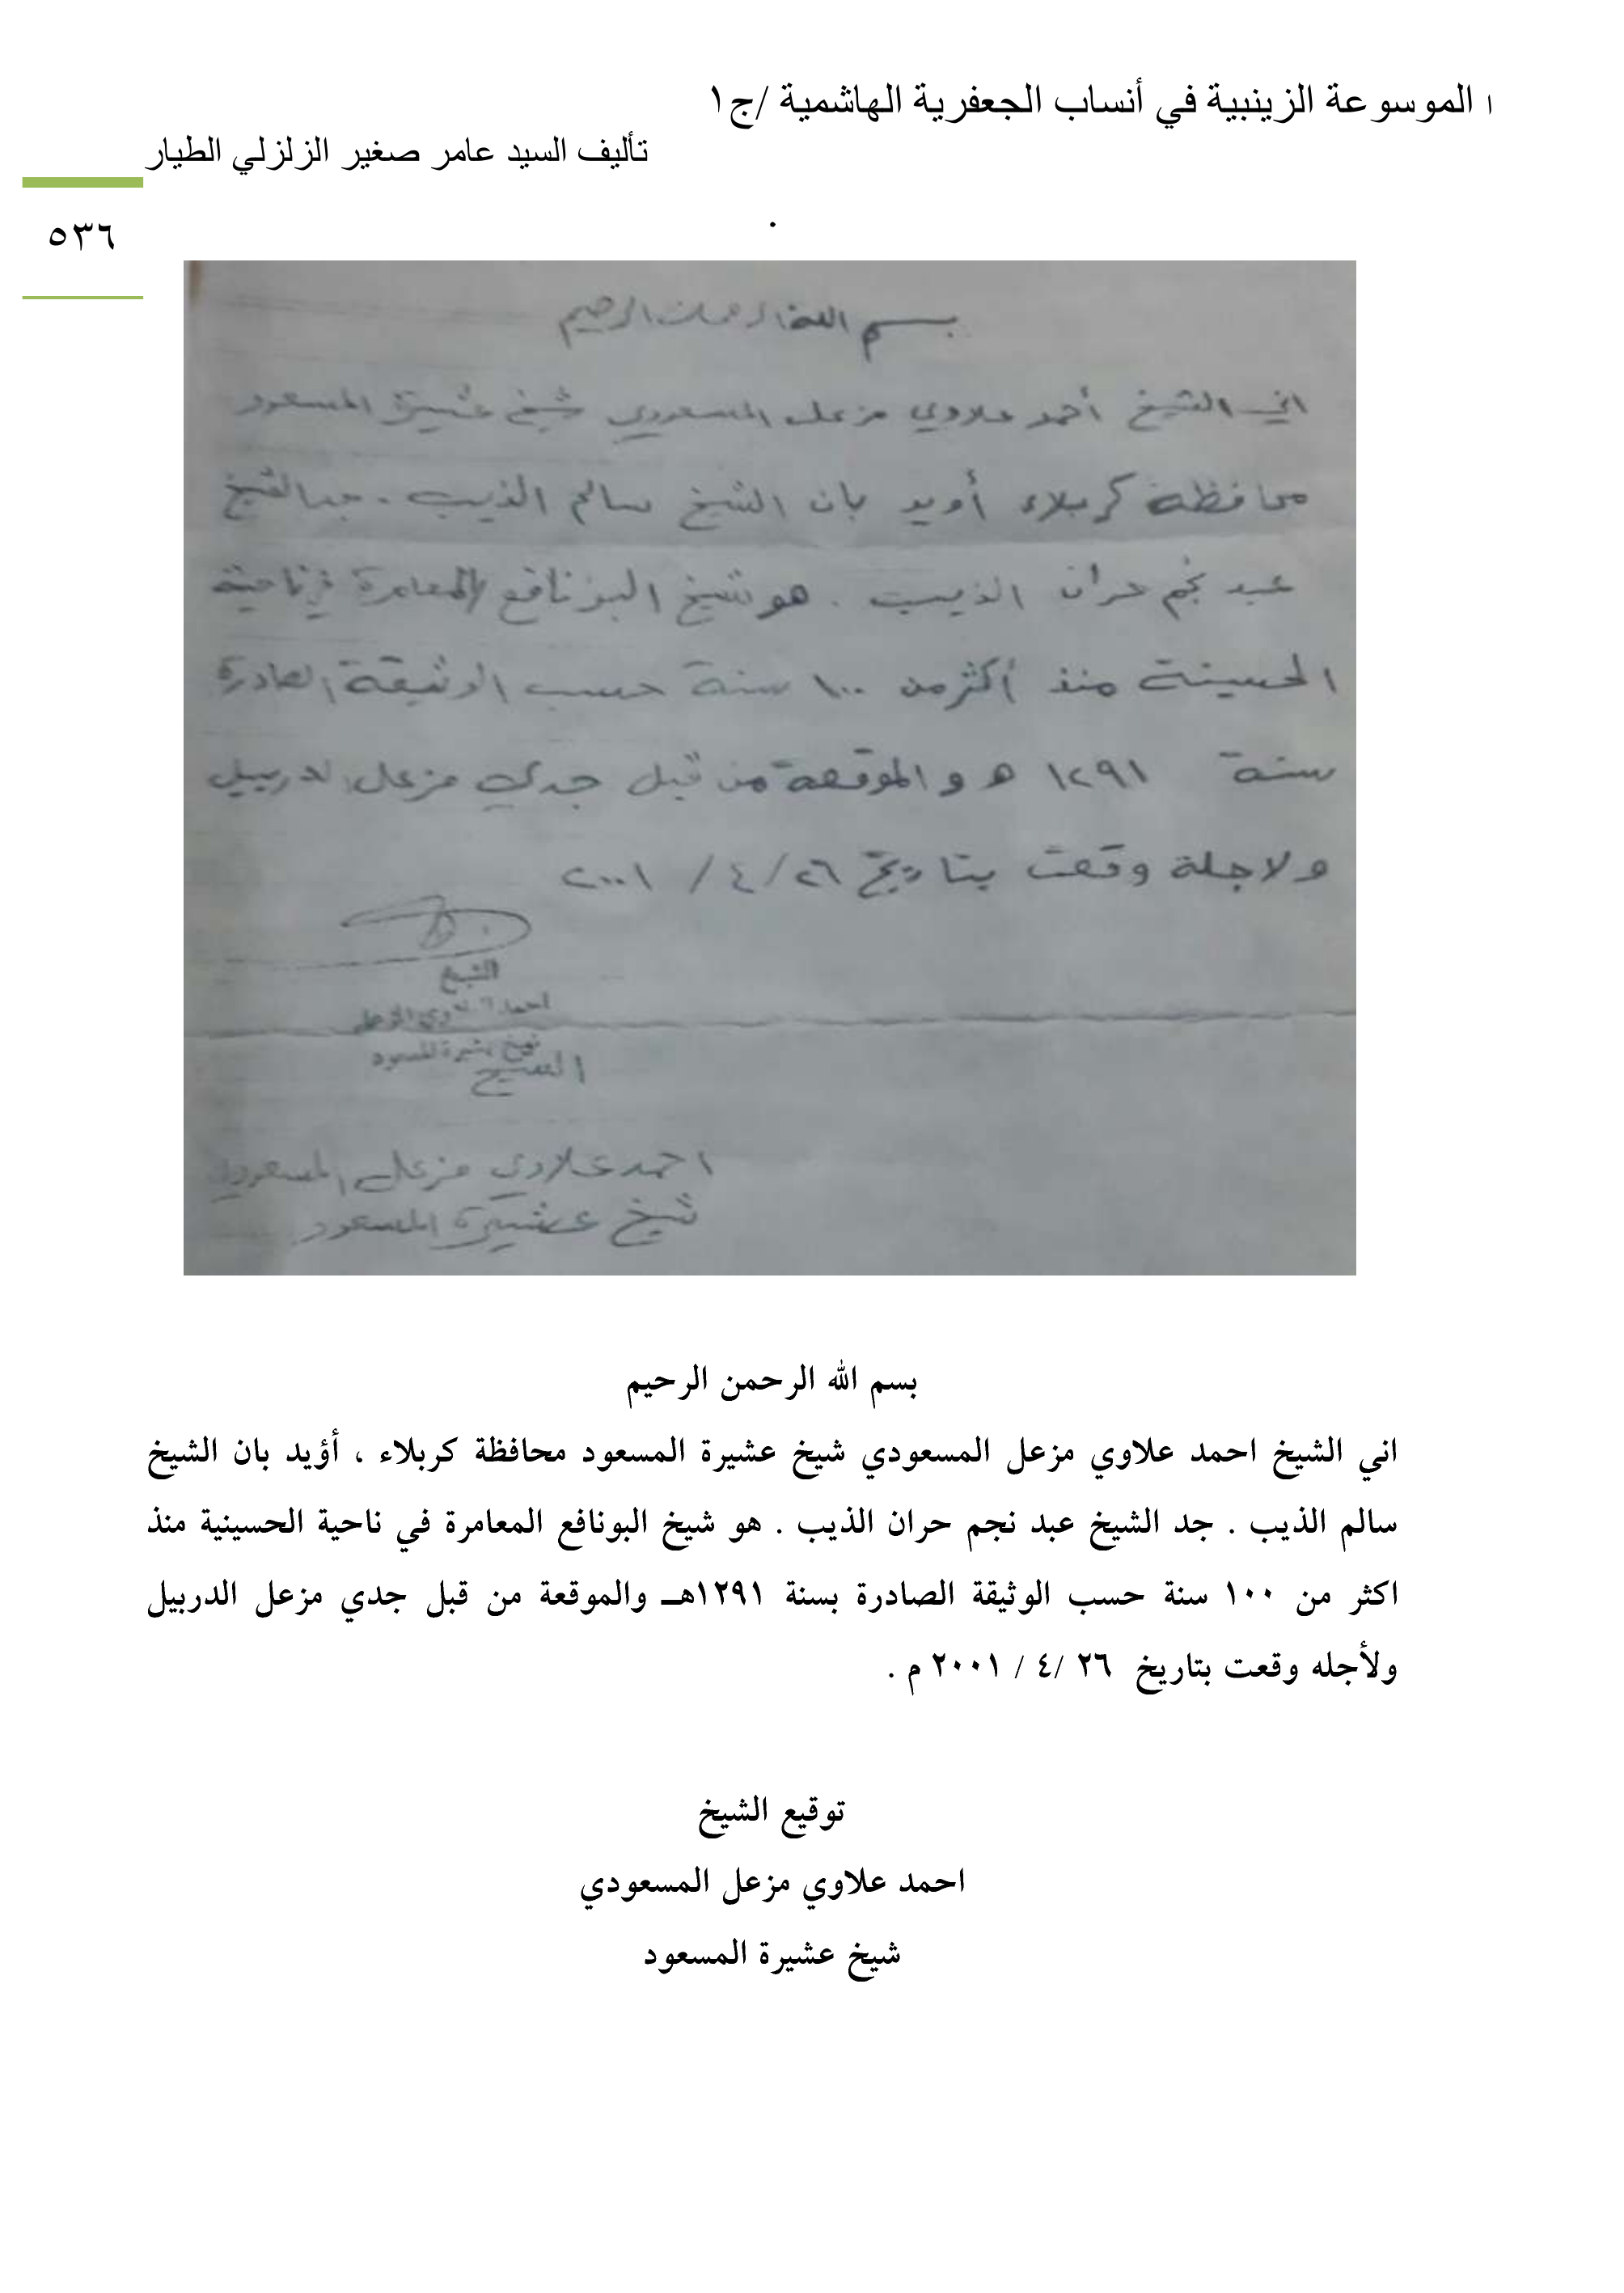 ا الموسوعة الزينبية في أنساب الجعفرية الهاشمية /ج١
تأليف السيد عامر صغير الزلزلي الطيار
٥٣٦
.
بسم الله الرحمن الرحيم
اني الشيخ أحمد علاوي مزعل المسعودي شيخ عشيرة المسعود
محافظة كربلاء أويد بان الشيخ سالم الذيب . جد الشيخ
عبد نجم حران الذيب . هو شيخ البو نافع المعامرة في ناحية
الحسينية منذ أكثر من ١٠٠ سنة حسب الوثيقة الصادرة
سنة ١٢٩١ هـ والموقعة من قبل جدي مزعل الدربيل
ولاجلة وقعت بتاريخ ٢٦ / ٤ / ٢٠٠١
الشيخ
احمد علاوي المزعل
شيخ عشيرة المسعود
الشيخ
احمد علاوي مزعل المسعودي
شيخ عشيرة المسعود
بسم الله الرحمن الرحيم
اني الشيخ احمد علاوي مزعل المسعودي شيخ عشيرة المسعود محافظة كربلاء ، أؤيد بان الشيخ
سالم الذيب . جد الشيخ عبد نجم حران الذيب . هو شيخ البونافع المعامرة في ناحية الحسينية منذ
اكثر من ١٠٠ سنة حسب الوثيقة الصادرة بسنة ١٢٩١هـ والموقعة من قبل جدي مزعل الدربيل
ولأجله وقعت بتاريخ ٢٦ /٤ / ٢٠٠١ م .
توقيع الشيخ
احمد علاوي مزعل المسعودي
شيخ عشيرة المسعود